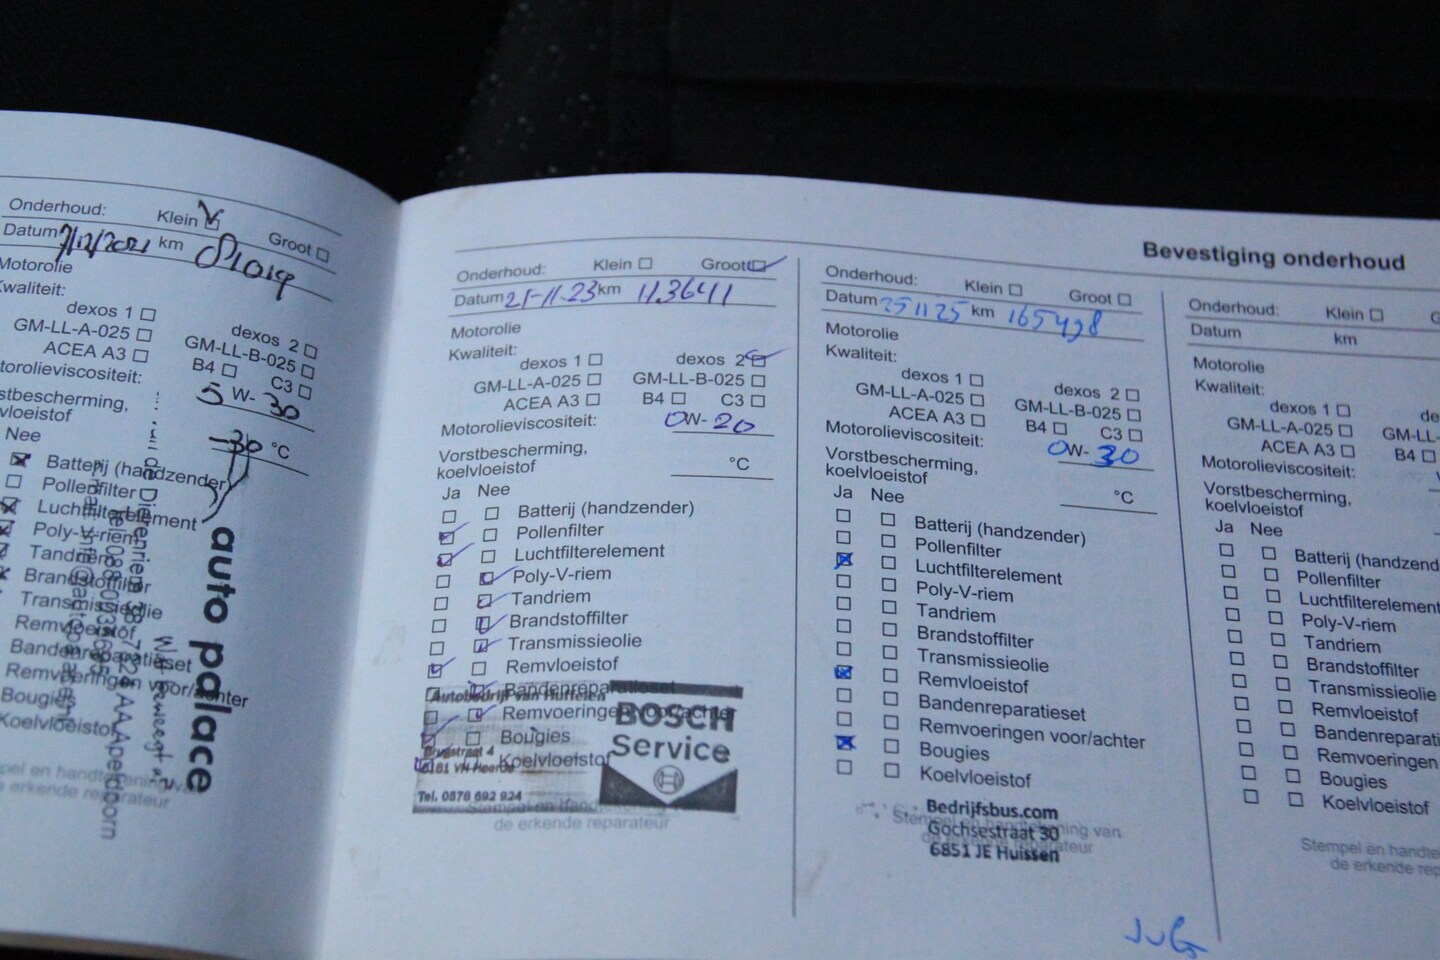 Bevestiging onderhoud
Onderhoud: Klein Groot
Datum 7/12/2021 km 81019
Motorolie
Kwaliteit:
dexos 1 dexos 2
GM-LL-A-025 GM-LL-B-025
ACEA A3 B4 C3
Motorolieviscositeit: 5 W- 30
stbescherming,
vloeistof -30 °C
Nee
Batterij (handzender)
Pollenfilter
Luchtfilterelement
Poly-V-riem
Tandriem
Brandstoffilter
Transmissieolie
Remvloeistof
Bandenreparatieset
Remvoeringen voor/achter
Bougies
Koelvloeistof
auto palace
Apeldoorn
Onderhoud: Klein Groot
Datum 21-11-23 km 113641
Motorolie
Kwaliteit:
dexos 1 dexos 2
GM-LL-A-025 GM-LL-B-025
ACEA A3 B4 C3
Motorolieviscositeit: 0W-20
Vorstbescherming,
koelvloeistof °C
Ja Nee
Batterij (handzender)
Pollenfilter
Luchtfilterelement
Poly-V-riem
Tandriem
Brandstoffilter
Transmissieolie
Remvloeistof
Bandenreparatieset
Remvoeringen voor/achter
Bougies
Koelvloeistof
BOSCH
Service
Tel. 0578 692 924
Stempel en handtekening
de erkende reparateur
Onderhoud: Klein Groot
Datum 25 11 25 km 165498
Motorolie
Kwaliteit:
dexos 1 dexos 2
GM-LL-A-025 GM-LL-B-025
ACEA A3 B4 C3
Motorolieviscositeit: 0W-30
Vorstbescherming,
koelvloeistof °C
Ja Nee
Batterij (handzender)
Pollenfilter
Luchtfilterelement
Poly-V-riem
Tandriem
Brandstoffilter
Transmissieolie
Remvloeistof
Bandenreparatieset
Remvoeringen voor/achter
Bougies
Koelvloeistof
Stempel en handtekening van
de erkende reparateur
Bedrijfsbus.com
Gochsestraat 30
6851 JE Huissen
Onderhoud: Klein G
Datum km
Motorolie
Kwaliteit:
dexos 1 de
GM-LL-A-025 GM-LL-
ACEA A3 B4
Motorolieviscositeit:
Vorstbescherming,
koelvloeistof
Ja Nee
Batterij (handzend
Pollenfilter
Luchtfilterelement
Poly-V-riem
Tandriem
Brandstoffilter
Transmissieolie
Remvloeistof
Bandenreparati
Remvoeringen
Bougies
Koelvloeistof
Stempel en handte
de erkende rep